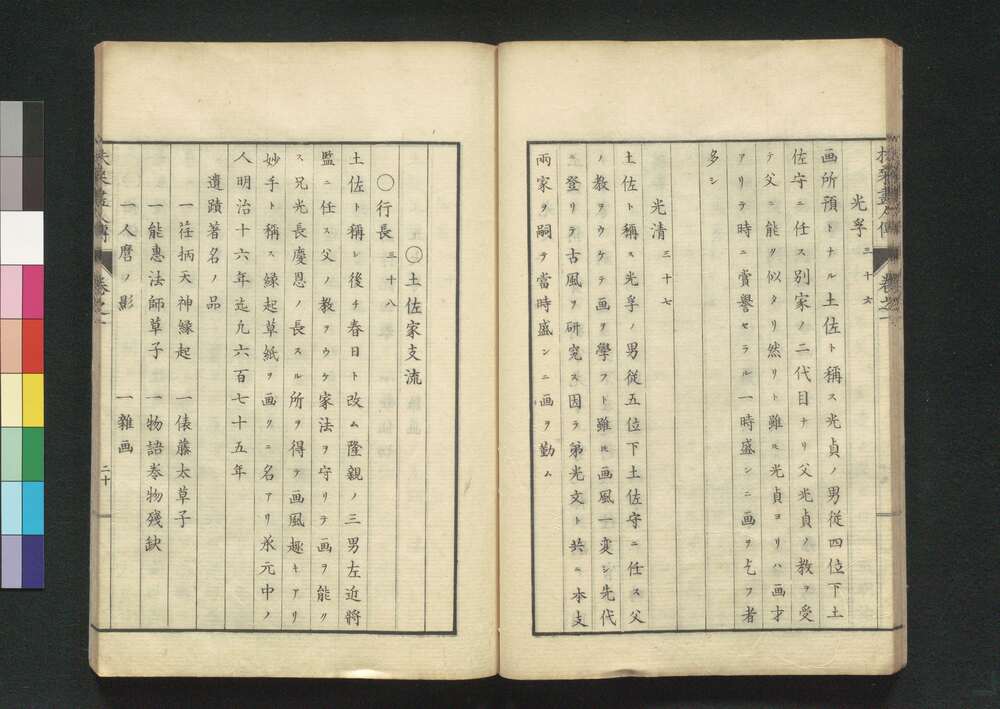 光孚 三十六
画所預トナル土佐ト稱ス光貞ノ男従四位下土
佐守ニ任ス別家ノ二代目ナリ父光貞ノ教ヲ受
テ父ニ能ク似タリ然リト雖𪜈光貞ヨリハ画才
アリテ時ニ賞譽セラル一時盛ンニ画ヲ乞フ者
多シ
光清 三十七
土佐ト稱ス光孚ノ男従五位下土佐守ニ任ス父
ノ教ヲウケテ画ヲ學フト雖𪜈画風一変シ先代
ニ登リテ古風ヲ研究ス因テ弟光文ト共ニ本支
兩家ヲ嗣テ當時盛ンニ画ヲ勤ム
〇土佐家支流
〇行長 三十八
土佐ト稱シ後チ春日ト改ム隆親ノ三男左近將
監ニ任ス父ノ教ヲウケ家法ヲ守リテ画ヲ能ク
ス兄光長慶恩ノ長スル所ヲ得テ画風趣キアリ
妙手ト稱ス縁起草紙ヲ画クニ名アリ承元中ノ
人明治十六年迄九六百七十五年
遺蹟著名ノ品
一荏柄天神縁起 一俵藤太草子
一能惠法師草子 一物語巻物殘缺
一人麿ノ影 一雜画
卷之一
二十